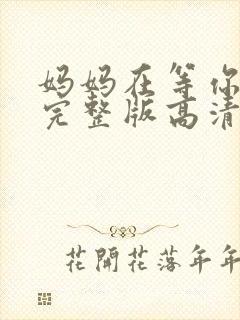 妈妈在等你
完整版高清
花開花落年年